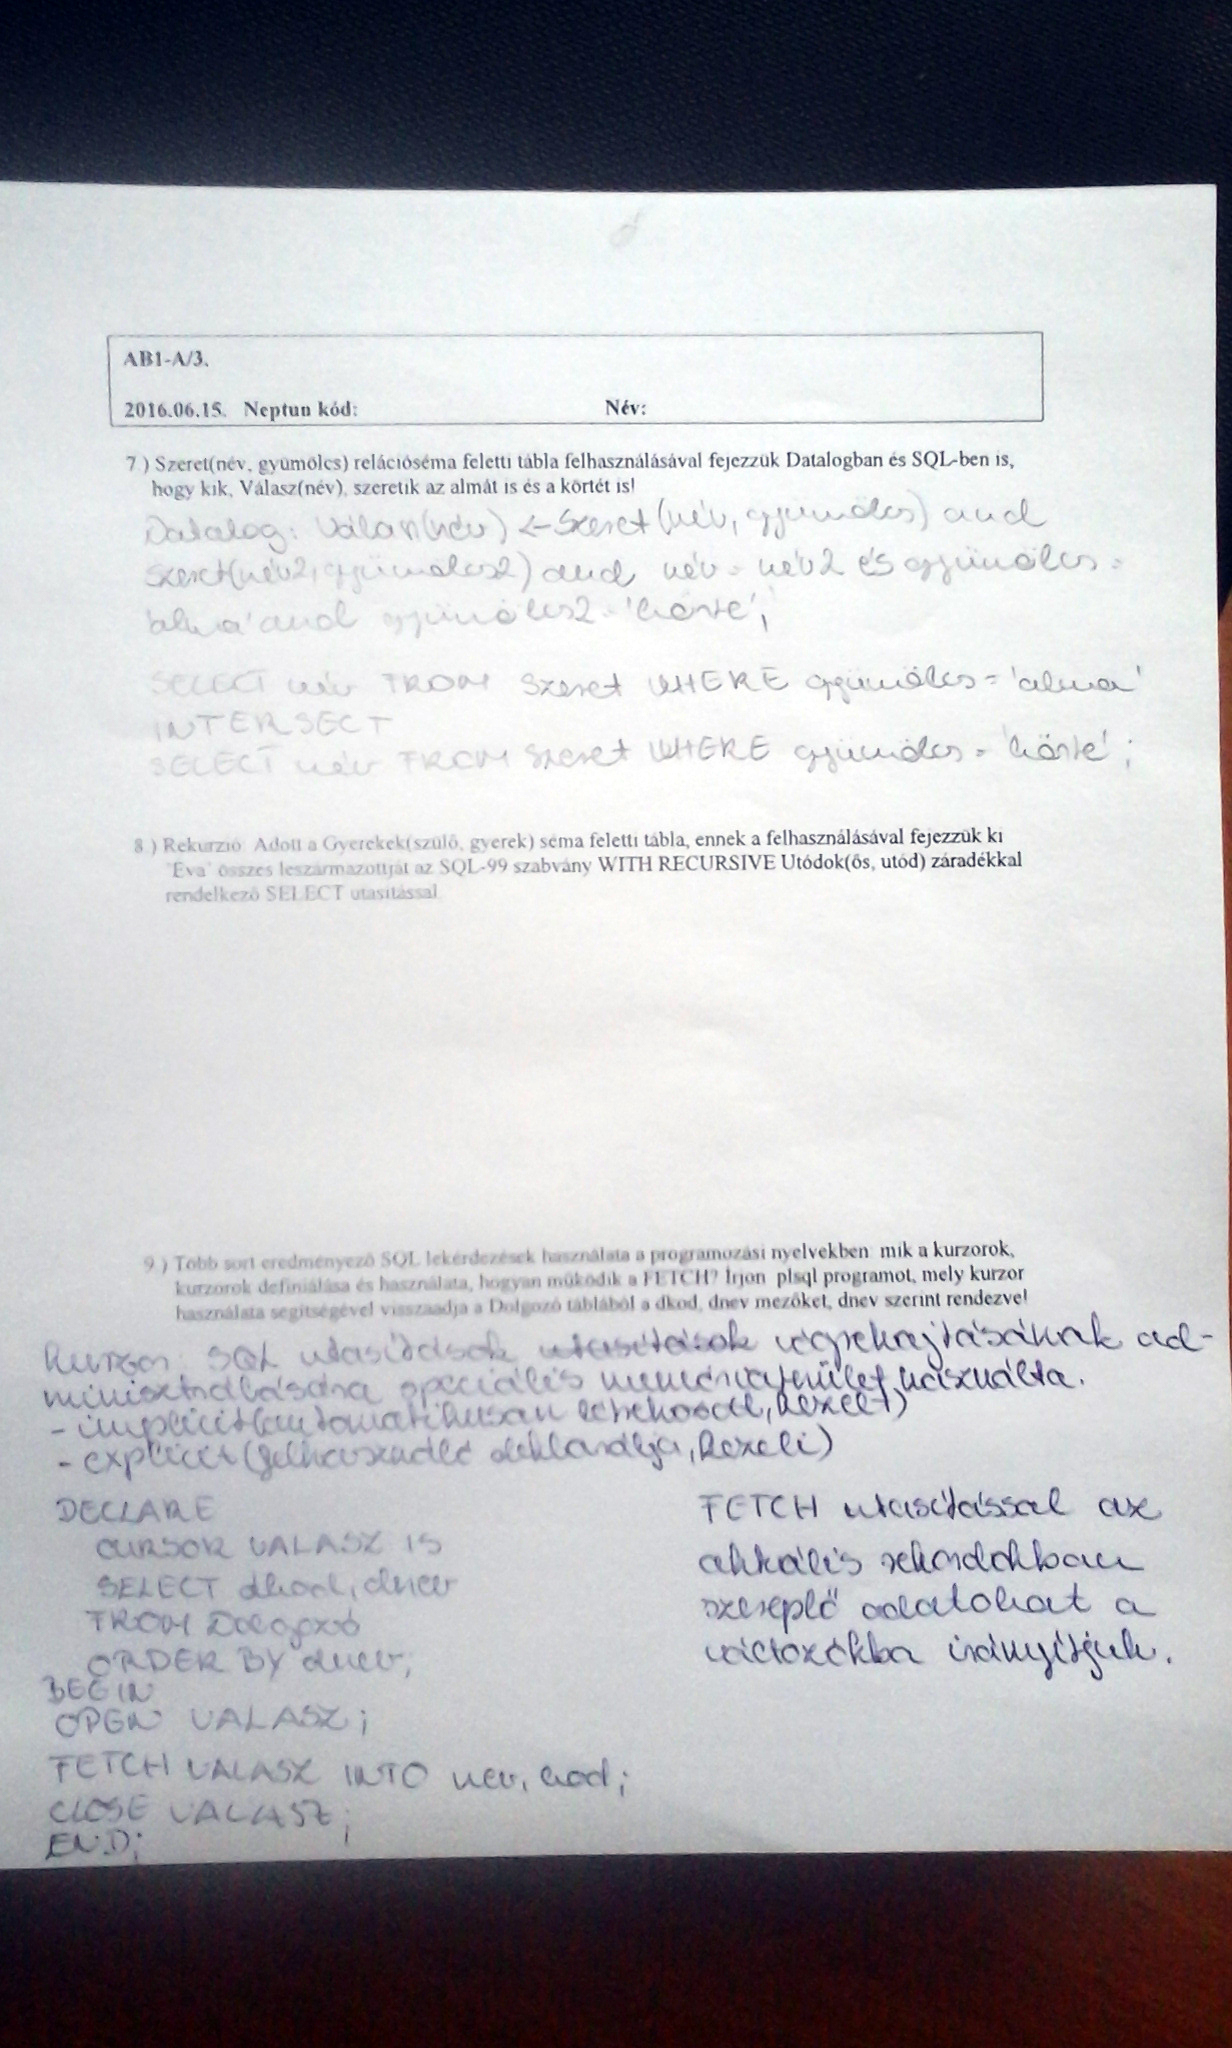 AB1-A/3.
2016.06.15. Neptun kód: Név:
7 ) Szeret(név, gyümölcs) relációséma feletti tábla felhasználásával fejezzük Datalogban és SQL-ben is,
hogy kik, Válasz(név), szeretik az almát is és a körtét is!
Datalog: Válasz(név) <- Szeret(név, gyümölcs) and
Szeret(név2, gyümölcs2) and név = név2 és gyümölcs =
'alma' and gyümölcs2 = 'körte';
SELECT név FROM Szeret WHERE gyümölcs = 'alma'
INTERSECT
SELECT név FROM Szeret WHERE gyümölcs = 'körte';
8 ) Rekurzió: Adott a Gyerekek(szülő, gyerek) séma feletti tábla, ennek a felhasználásával fejezzük ki
'Éva' összes leszármazottját az SQL-99 szabvány WITH RECURSIVE Utódok(ős, utód) záradékkal
rendelkező SELECT utasítással.
9 ) Több sort eredményező SQL lekérdezések használata a programozási nyelvekben: mik a kurzorok,
kurzorok definiálása és használata, hogyan működik a FETCH? Írjon plsql programot, mely kurzor
használata segítségével visszaadja a Dolgozó táblából a dkod, dnev mezőket, dnev szerint rendezve!
Kurzor: SQL utasítások utasítások végrehajtásának ad-
minisztrálására speciális memóriaterület használta.
- implicit (automatikusan létrehozott, kezelt)
- explicit (felhasználó deklarálja, kezeli)
DECLARE
CURSOR VALASZ IS
SELECT dkod, dnev
FROM Dolgozó
ORDER BY dnev;
BEGIN
OPEN VALASZ;
FETCH VALASZ INTO nev, kod;
CLOSE VALASZ;
END;
FETCH utasítással az
aktuális rekordokban
szereplő adatokat a
változókba irányítjuk.